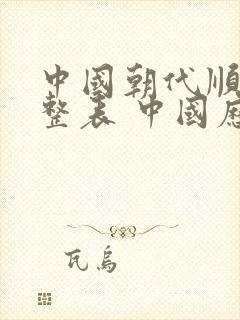 中國朝代順
整表 中國
瓦烏